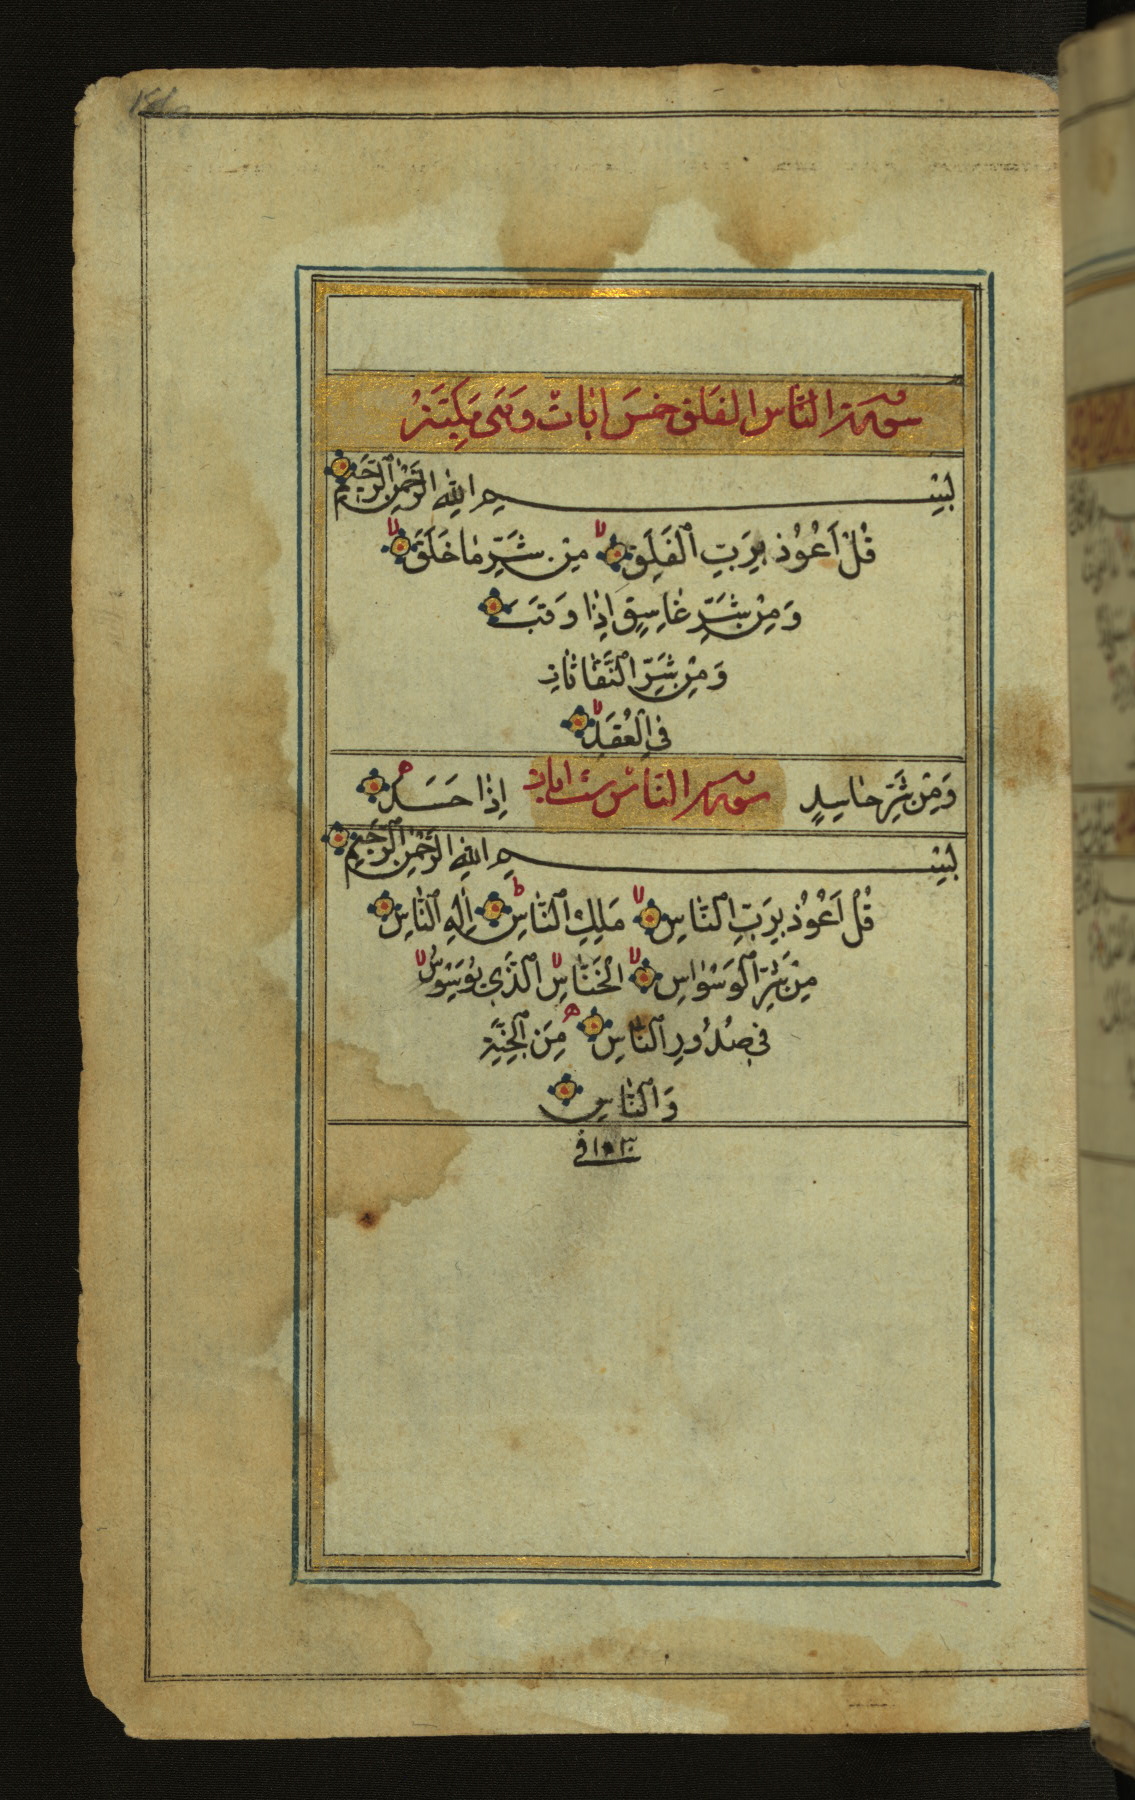 سورة الناس الفلق خمس اٰيات وهى مكيّة
بِسْمِ اللّٰهِ الرَّحْمٰنِ الرَّحٖيمِ
قُلْ اَعُوْذُ بِرَبِّ الْفَلَقِۙ مِنْ شَرِّ مٰا خَلَقَۙ
وَ مِنْ شَرِّ غٰاسِقٍ اِذٰا وَقَبَ
وَ مِنْ شَرِّ النَّفّٰاثٰاتِ
فِى الْعُقَدِۙ
وَ مِنْ شَرِّ حٰاسِدٍ سورة الناس ستّ اٰيات اِذٰا حَسَدَ
بِسْمِ اللّٰهِ الرَّحْمٰنِ الرَّحٖيمِ
قُلْ اَعُوْذُ بِرَبِّ النّٰاسِۙ مَلِكِ النّٰاسِۙ اِلٰهِ النّٰاسِ
مِنْ شَرِّ الْوَسْوٰاسِۙ الْخَنّٰاسِۙ الَّذٖى يُوَسْوِسُۙ
فٖى صُدُورِ النّٰاسِ مِنَ الْجِنَّةِ
وَ النّٰاسِ